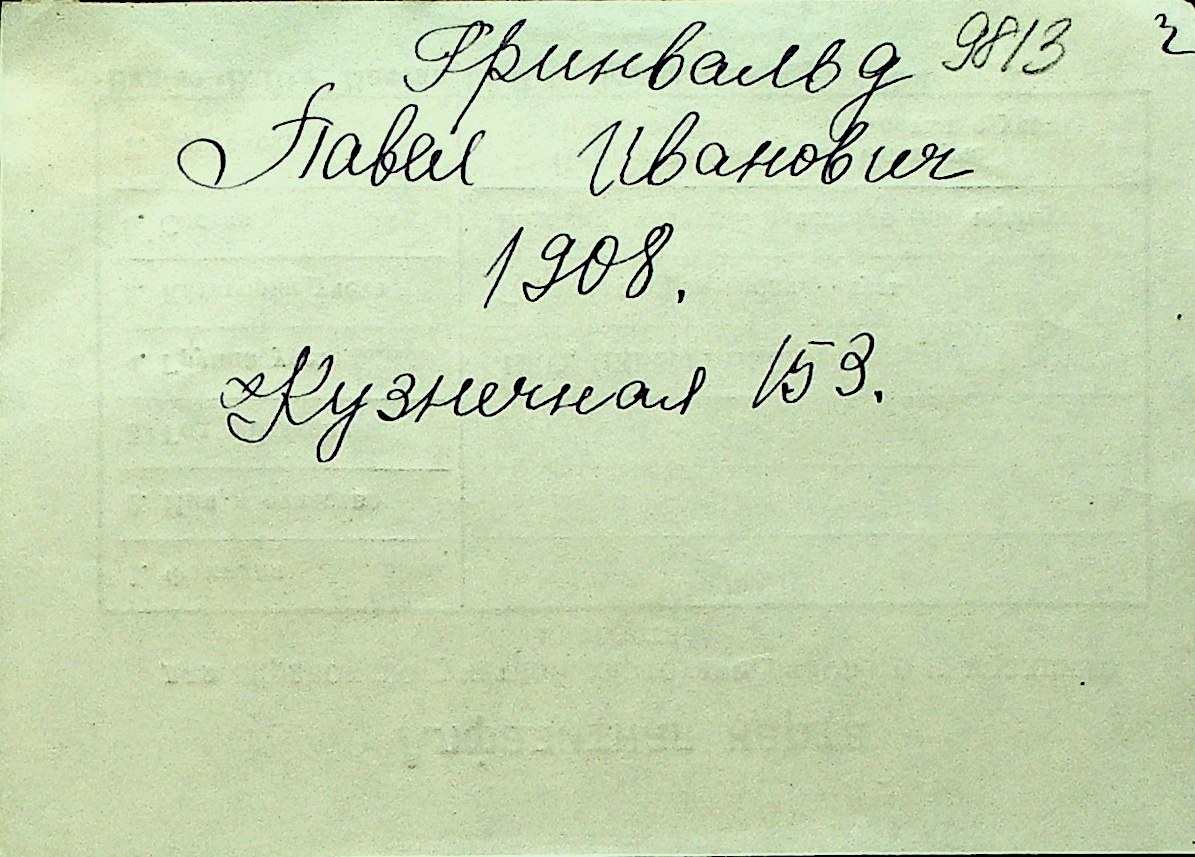 Гринвальд 9813
Павел Иванович
1908.
Кузнечная 153.